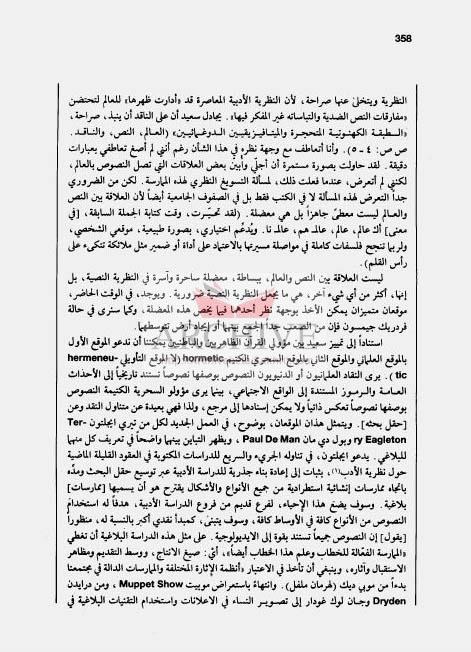 358
النظرية ويتخلى عنها صراحة، لأن النظرية الأدبية المعاصرة قد «أدارت ظهرها» للعالم لتحتضن
«مفارقات النص الضدية والتباساته غير المفكر فيها». يجادل سعيد أن على الناقد أن ينبذ، صراحة،
«السطيقة الكهنوتية المتحجرة والميتافيزيقيين الدوغمائيين» (العالم، النص، والناقد.
ص ص: ٤ - ٥). وأنا أتعاطف مع وجهة نظره في هذا الشأن رغم أنني لم أصغ تعاطفي بعبارات
دقيقة. لقد حاولت بصورة مستمرة أن أجلي وأبين بعض العلاقات التي تصل النصوص بالعالم،
لكنني لم أتعرض، عندما فعلت ذلك، لمسألة التسويغ النظري لهذه الممارسة. لكن من الضروري
جداً التعرض لهذه المسألة لا في الكتب فقط بل في الصفوف الجامعية أيضاً لأن العلاقة بين النص
والعالم ليست معطى جاهزاً بل هي معضلة. (لقد تحيّرت، وقت كتابة الجملة السابقة، [في
معنى] أك عالم، عالمـ هم، عالمـ نا. ويُدعّم اختياري، بصورة طبيعية، موقعي الشخصي،
ولربما تنجح فلسفات كاملة في مواصلة مسيرتها بالاعتماد على أداة أو ضمير مثل ملائكة تتكىء على
رأس القلم).
ليست العلاقة بين النص والعالم، ببساطة، معضلة ساحرة وآسرة في النظرية النصية، بل
إنها، أكثر من أي شيء آخر، هي ما يجعل النظرية النصية ضرورية. ويوجد، في الوقت الحاضر،
موقعان متميزان يمكن الأخذ بوجهة نظر أحدهما فيما يخص هذه المعضلة، وكما سنرى في حالة
فردريك جيمسون فإن من الصعب جداً الجمع بينهما أو إيجاد أرض تتوسطهما.
استناداً إلى تمييز سعيد بين مؤولي القرآن الظاهريين والباطنيين يمكننا أن ندعو الموقع الأول
بالموقع العلماني والموقع الثاني بالموقع السحري الكتيم hormetic (لا الموقع التأويلي hermeneu-
tic). يرى النقاد العلمانيون أو الدنيويون النصوص بوصفها نصوصاً تستند تاريخياً إلى الأحداث
العامة والرموز المستندة إلى الواقع الاجتماعي، بينما يرى مؤولو السحرية الكتيمة النصوص
بوصفها نصوصاً تعكس ذاتياً ولا يمكن إسنادها إلى مرجع، ولذا فهي بعيدة عن متناول النقد وعن
[حقل بحثه]. ويتمثل هذان الموقعان، بوضوح، في العمل الجديد لكل من تيري ايجلتون Ter-
ry Eagleton وبول دي مان Paul De Man، ويظهر التباين بينهما واضحاً في تعريف كل منهما
للبلاغي. يدعو ايجلتون، في تناوله الجريء والسريع للدراسات المكتوبة في العقود القليلة الماضية
حول نظرية الأدب(١)، بثبات إلى إعادة بناء جذرية للدراسة الأدبية عبر توسيع حقل البحث ومدّه
باتجاه ممارسات إنشائية استطرادية من جميع الأنواع والأشكال يقترح هو أن يسميها [ممارسات]
بلاغية. وسوف يضع هذا الإحياء، لفرع قديم من فروع الدراسة الأدبية، هدفاً له استخدام
النصوص من الأنواع كافة في الأوساط كافة، وسوف يتبنى، كمبدأ نقدي أكبر بالنسبة له، منظوراً
[يقول] إن النصوص جميعاً تستند بقوة إلى الايديولوجية. على مثل هذه الدراسة البلاغية أن تغطي
«الممارسة الفعّالة للخطاب وعلم هذا الخطاب أيضاً»، أيّ: صيغ الانتاج، ووسط التقديم ومظاهر
الاستقبال وآثاره، وينبغي أن تأخذ في الاعتبار «أنظمة الإثارة المختلفة والممارسات الدالة في مجتمعنا
بدءاً من موبي ديك (لهرمان ملفل). وانتهاءً باستعراض موبيت Muppet Show، ومن درايدن
Dryden وجان لوك غودار إلى تصوير النساء في الاعلانات واستخدام التقنيات البلاغية في